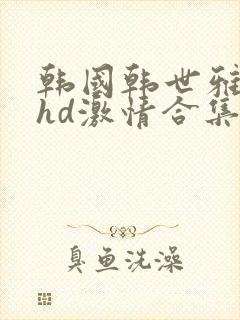 韩国韩世雅
hd激情合集
臭鱼洗澡